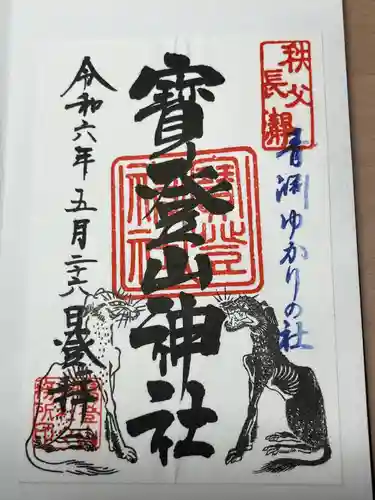 秩父
長瀞
青淵ゆかりの社
寳登山神社
寳登山神社
令和六年五月二十六日登拝